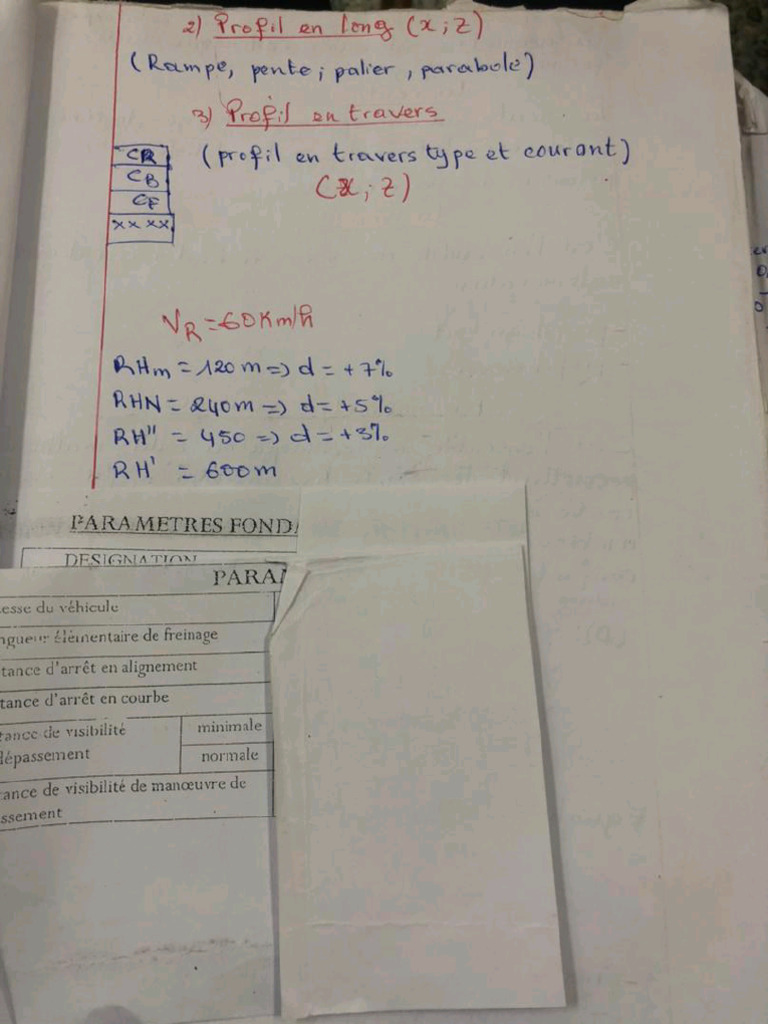 2) Profil en long (x ; z)
(Rampe, pente ; palier , parabole)
3) Profil en travers
CR
(profil en travers type et courant)
CB
(x ; z)
CF
xx xx
VR = 60 Km/h
RHm = 120 m => d = +7%
RHN = 240 m => d = +5%
RH" = 450 => d = +3%
RH' = 600 m
PARAMETRES FOND
DESIGNATION
PARA
esse du véhicule
ngueur élémentaire de freinage
tance d'arrêt en alignement
tance d'arrêt en courbe
tance de visibilité
minimale
dépassement
normale
ance de visibilité de manœuvre de
ssement